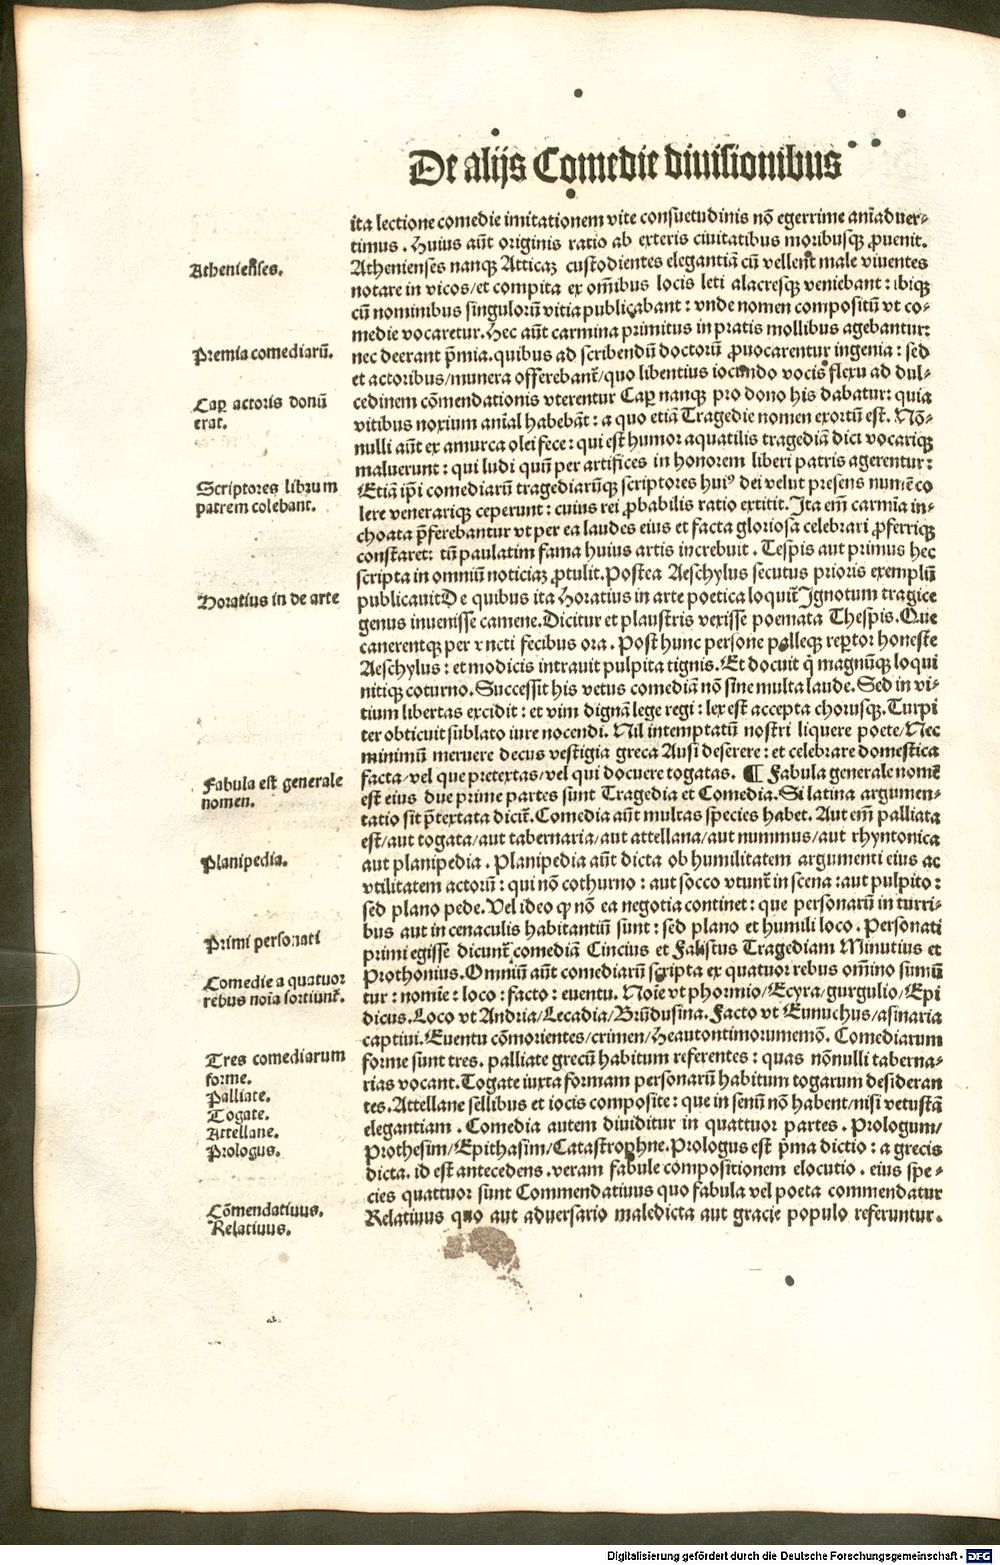 De alijs Comedie diuisionibus
ita lectione comedie imitationem vite consuetudinis nō egerrime aīaduer-
timus . Huius aūt originis ratio ab exteris ciuitatibus moribusqꝫ ꝓuenit.
Athenienses.
Athenienses nanqꝫ Atticaꝫ custodientes elegantiā cū vellent male viuentes
notare in vicos/et compita ex om̄ibus locis leti alacresqꝫ veniebant : ibiqꝫ
cū nominibus singulorū vitia publicabant : vnde nomen compositū vt co-
medie vocaretur. Hec aūt carmina primitus in pratis mollibus agebantur:
Premia comediarū.
nec deerant p̄mia. quibus ad scribendū doctorū ꝓuocarentur ingenia : sed
et actoribus/munera offerebant̄/quo libentius iocundo vocis flexu ad dul-
Cap̄ actoris donū
erat.
cedinem cōmendationis vterentur Cap̄ nanqꝫ pro dono his dabatur: quia
vitibus noxium aīal habebāt : a quo etiā Tragedie nomen exortū est. Nō-
nulli aūt ex amurca olei fece : qui est humor aquatilis tragediā dici vocariqꝫ
maluerunt : qui ludi quū per artifices in honorem liberi patris agerentur:
Scriptores librum
patrem colebant.
Etiā ip̄i comediarū tragediarūqꝫ scriptores huiꝰ dei velut presens numē co
lere venerariqꝫ ceperunt : cuius rei ꝓbabilis ratio extitit. Ita em̄ carmīa in-
choata p̄ferebantur vt per ea laudes eius et facta gloriosa celebrari ꝓferriqꝫ
constaret: tū paulatim fama huius artis increbuit . Tespis aut primus hec
scripta in omniū noticiaꝫ ꝓtulit. Postea Aeschylus secutus prioris exemplū
Horatius in de arte
publicauit De quibus ita Horatius in arte poetica loquit̄ Ignotum tragice
genus inuenisse camene. Dicitur et plaustris vexisse poemata Thespis. Que
canerentqꝫ per vncti fecibus ora . Post hunc persone palleqꝫ rep̄tor honeste
Aeschylus : et modicis intrauit pulpita tignis. Et docuit q̄ magnūqꝫ loqui
nitiqꝫ coturno. Successit his vetus comediā nō sine multa laude. Sed in vi-
tium libertas excidit : et vim dignā lege regi : lex est accepta chorusqꝫ. Turpi
ter obticuit sublato iure nocendi. Nil intemptatū nostri liquere poete/Nec
minimū meruere decus vestigia greca Ausi deserere : et celebrare domestica
Fabula est generale
nomen.
facta/vel que pretextas/vel qui docuere togatas. ¶ Fabula generale nomē
est eius due prime partes sunt Tragedia et Comedia. Si latina argumen-
tatio sit p̄textata dicit̄. Comedia aūt multas species habet. Aut em̄ palliata
est/aut togata/aut tabernaria/aut attellana/aut nummus/aut rhyntonica
Planipedia.
aut planipedia . Planipedia aūt dicta ob humilitatem argumenti eius ac
vtilitatem actorū : qui nō cothurno : aut socco vtunt̄ in scena : aut pulpito :
sed plano pede. Vel ideo ꝙ nō ea negotia continet : que personarū in turri-
Primi personati
bus aut in cenaculis habitantiū sunt : sed plano et humili loco . Personati
primi egisse dicunt̄ comediā Cincius et Falistus Tragediam Minutius et
Comedie a quatuor
rebus noīa sortiunt̄.
Prothonius. Omniū aūt comediarū scripta ex quatuor rebus om̄ino sumū
tur : nomīe : loco : facto : euentu. Noīe vt phormio/Ecyra/gurgulio/Epi
dicus. Loco vt Andria/Lecadia/Brūdusina. Facto vt Eunuchus/asinaria
captiui. Euentu cōmorientes/crimen/Heautontimorumemō. Comediarum
Tres comediarum
forme.
Palliate.
Togate.
Attellane.
Prologus.
forme sunt tres. palliate grecū habitum referentes : quas nōnulli taberna-
rias vocant. Togate iuxta formam personarū habitum togarum desideran
tes. Attellane sellibus et iocis composite : que in senū nō habent/nisi vetustā
elegantiam . Comedia autem diuiditur in quattuor partes . Prologum/
Prothesim/Epithasim/Catastrophne. Prologus est p̄ma dictio : a grecis
dicta. id est antecedens . veram fabule compositionem elocutio . eius spe-
Cōmendatiuus.
Relatiuus.
cies quattuor sunt Commendatiuus quo fabula vel poeta commendatur
Relatiuus quo aut aduersario maledicta aut gracie populo referuntur.
Digitalisierung gefördert durch die Deutsche Forschungsgemeinschaft - DFG